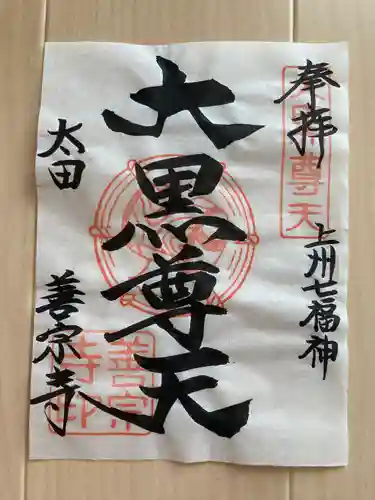 奉拝
上州七福神
大黒尊天
太田
善宗寺
善宗
寺印